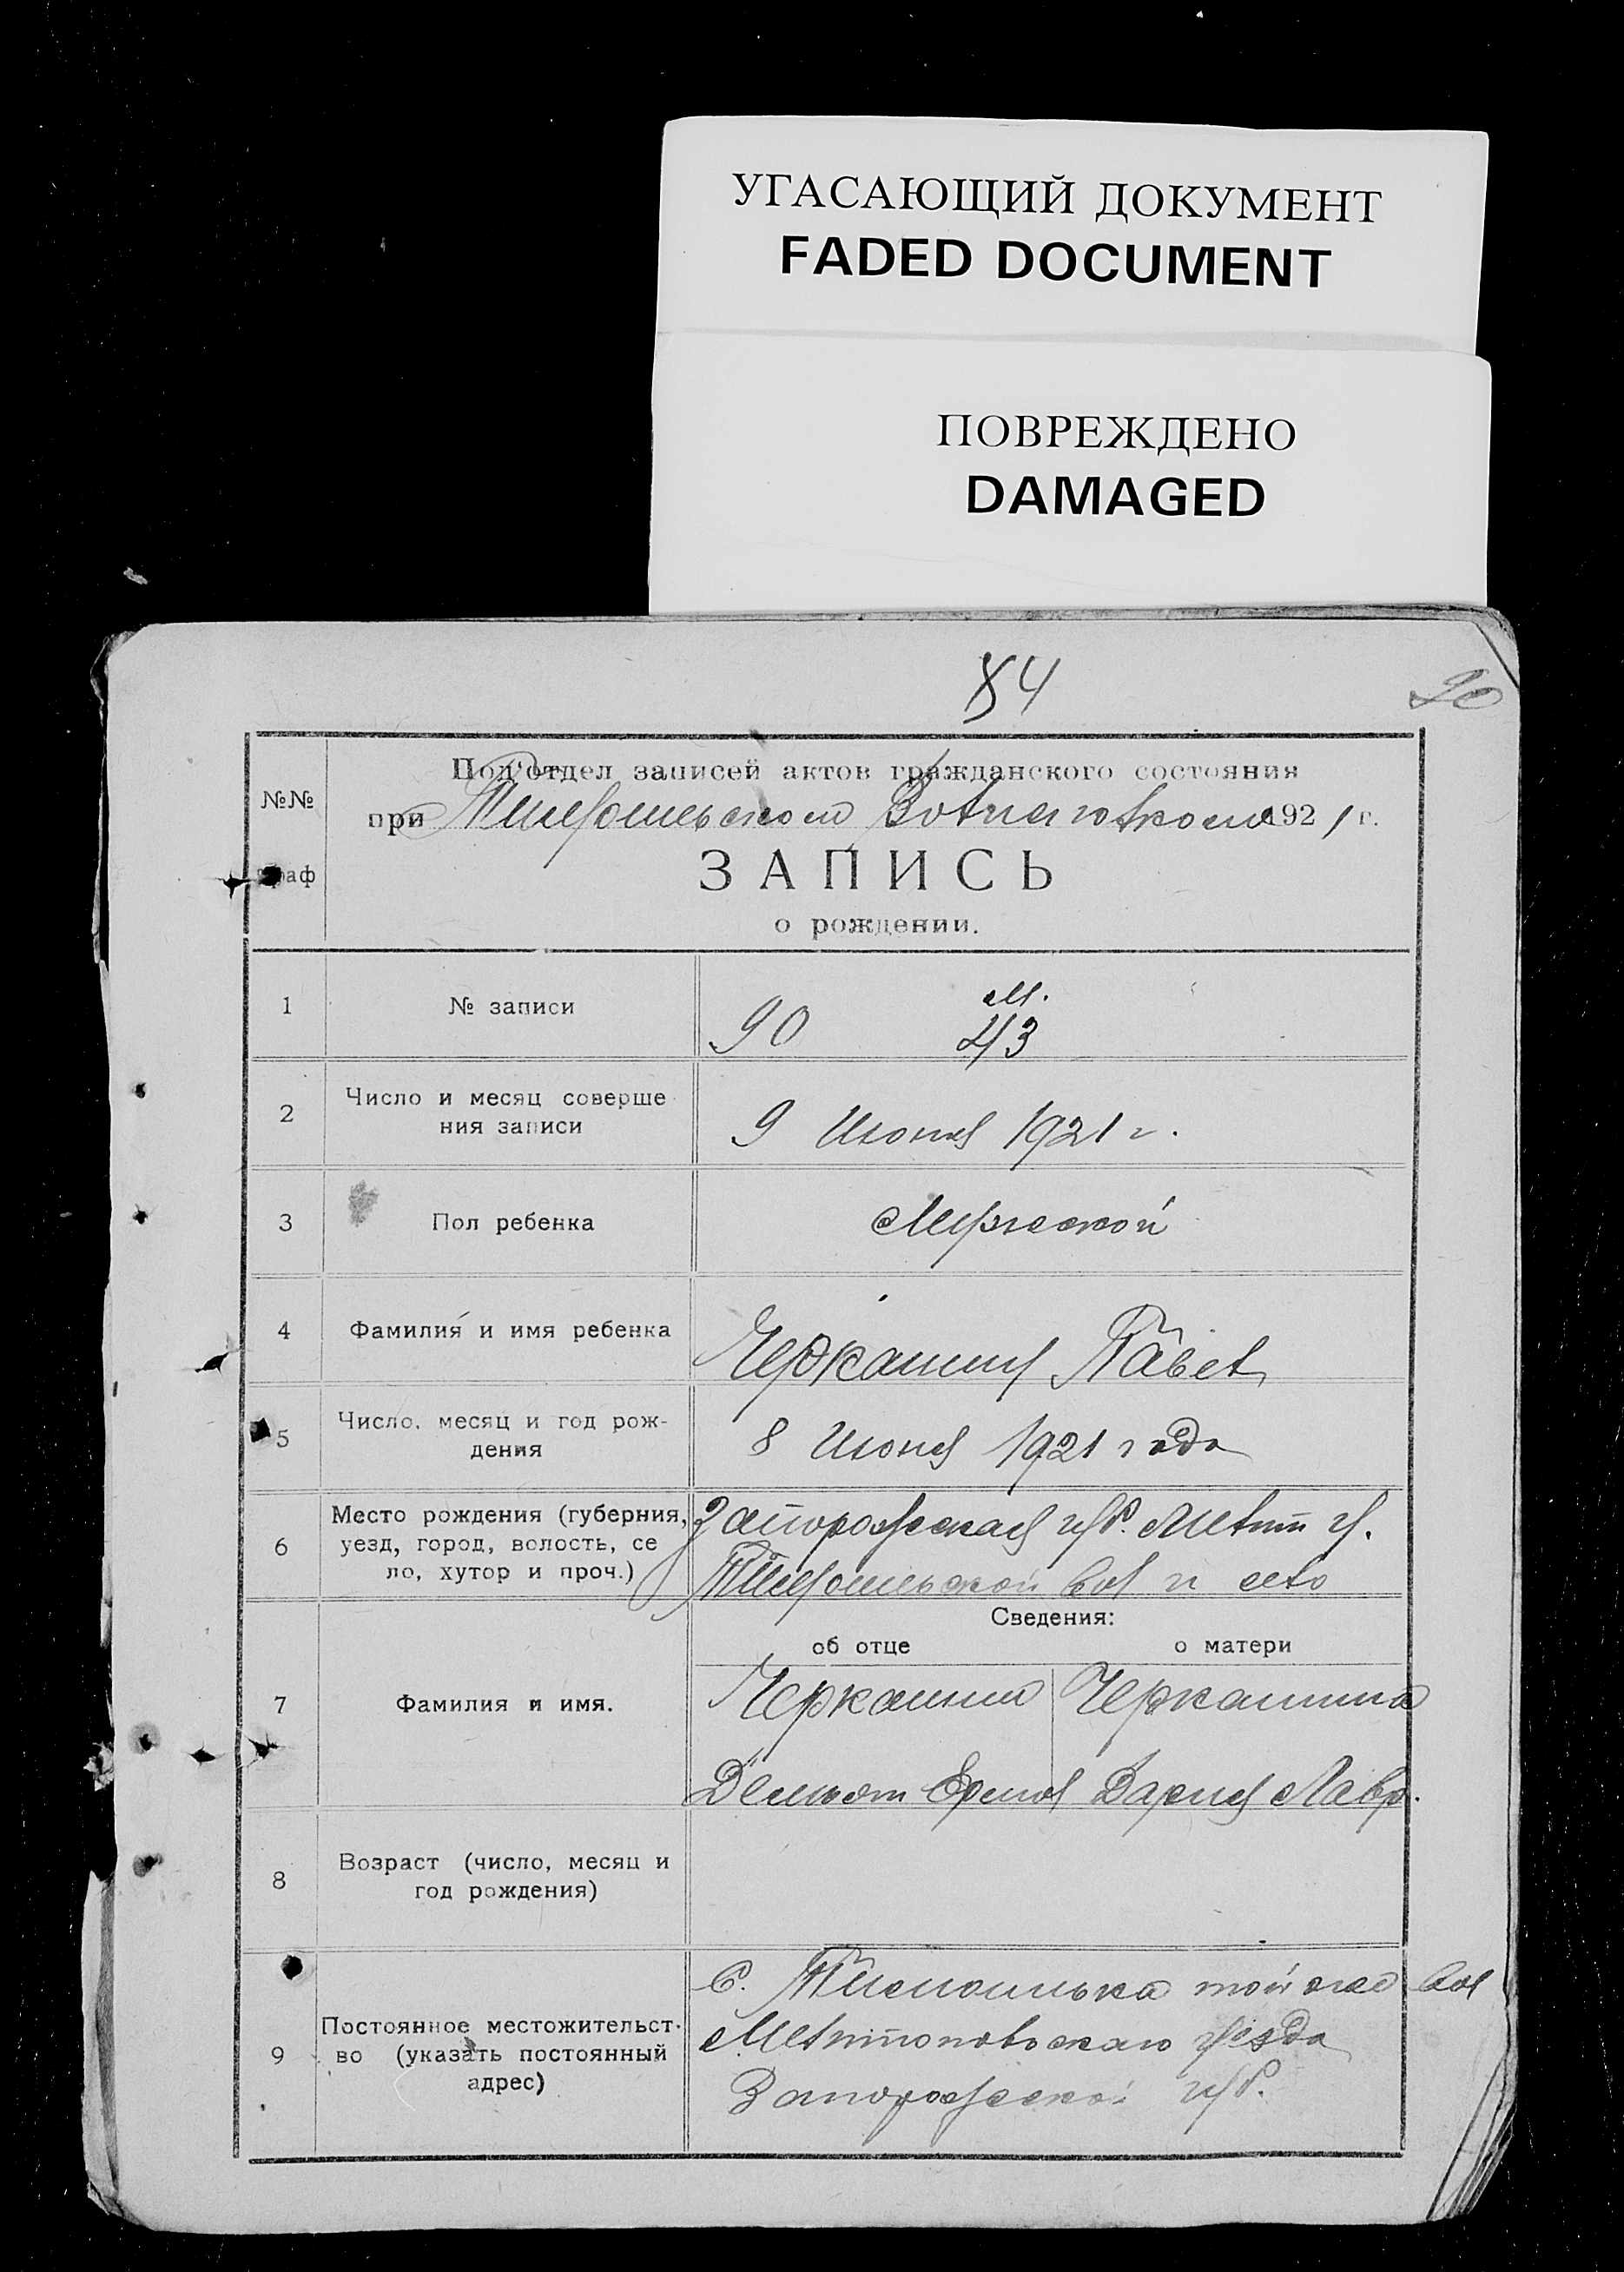 УГАСАЮЩИЙ ДОКУМЕНТ
FADED DOCUMENT
ПОВРЕЖДЕНО
DAMAGED
84
20
Под'отдел записей актов гражданского состояния
№№
при Тимошевском 1921 г.
граф
ЗАПИСЬ
о рождении.
1 № записи 90 м. 43
2 Число и месяц соверше
ния записи 9 Июня 1921 г.
3 Пол ребенка Мужской
4 Фамилия и имя ребенка Черкашин Павел
5 Число, месяц и год рож-
дения 8 Июня 1921 года
6 Место рождения (губерния,
уезд, город, волость, се
ло, хутор и проч.)
Запорожская губ. Мелит у.
вол и село
Сведения:
об отце о матери
7 Фамилия и имя.
Черкашин Черкашина
Демьян Дария Лавр.
8 Возраст (число, месяц и
год рождения)
9 Постоянное местожительст-
во (указать постоянный
адрес)
С. той же вол
Мелитопольскаго уезда
Запорожской губ.